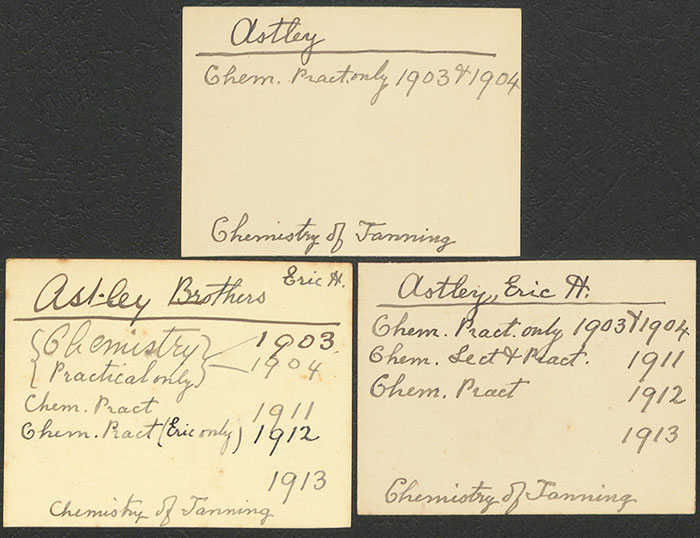 Astley
Chem. Pract. only 1903 & 1904
Chemistry of Tanning
Astley Brothers Eric H.
{Chemistry} 1903
{Practical only} 1904
Chem. Pract 1911
Chem. Pract (Eric only) 1912
1913
Chemistry of Tanning
Astley, Eric H.
Chem. Pract. only 1903 & 1904
Chem. Lect & Pract. 1911
Chem. Pract 1912
1913
Chemistry of Tanning